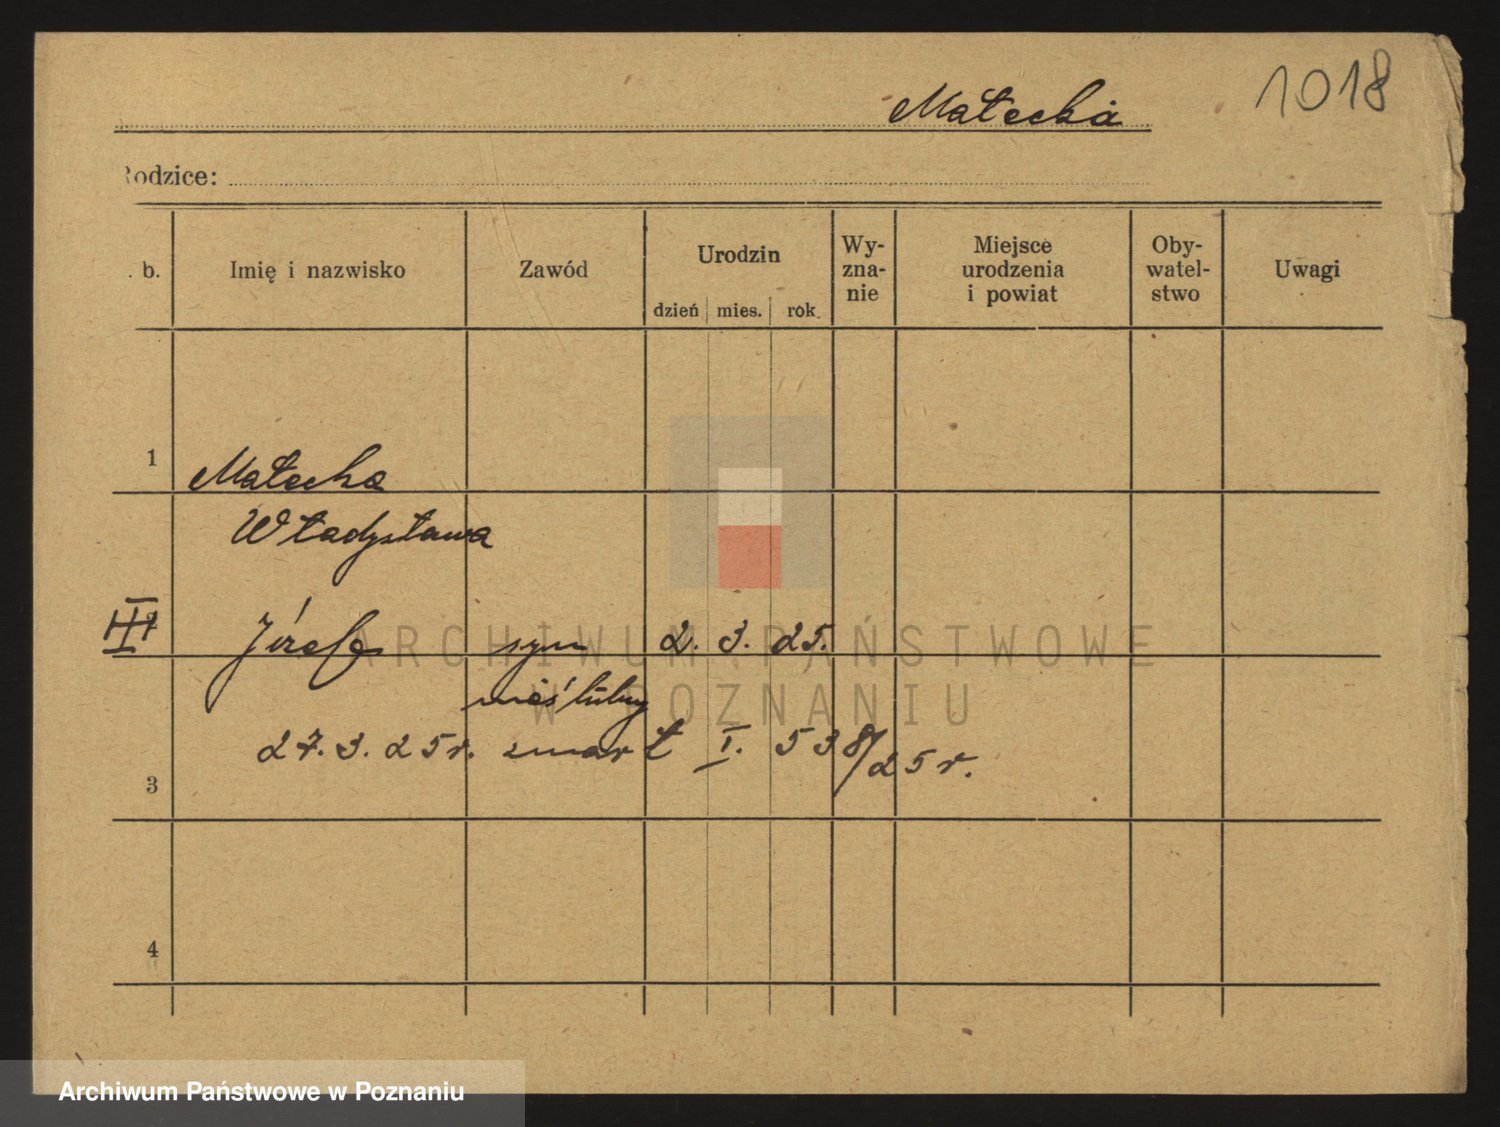 1018
Małecka
Rodzice:
. b.
Imię i nazwisko
Zawód
Urodzin
dzień mies. rok
Wy-
zna-
nie
Miejsce
urodzenia
i powiat
Oby-
watel-
stwo
Uwagi
1 Małecka
Władysława
III Józef syn 2. 3. 25.
nieślubny
27. 3. 25 r. zmarł I. 538/25 r.
3
4
ARCHIWUM PAŃSTWOWE
W POZNANIU
Archiwum Państwowe w Poznaniu